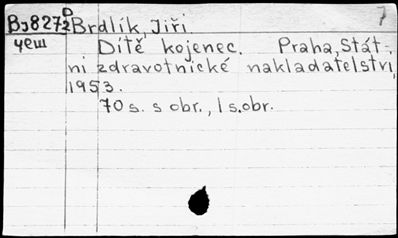 7
Bj8272 D Brdlík, Jiří.
чеш Dítě kojenec. Praha, Stát-
ní zdravotnické nakladatelství,
1953.
70 s. s obr., 1 s.obr.